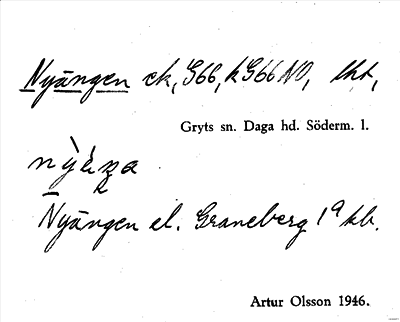 Nyängen ek, G66, kG66NO, lht,
Gryts sn. Daga hd. Söderm. l.
Nyängen el. Graneberg 1 kb.
Artur Olsson 1946.